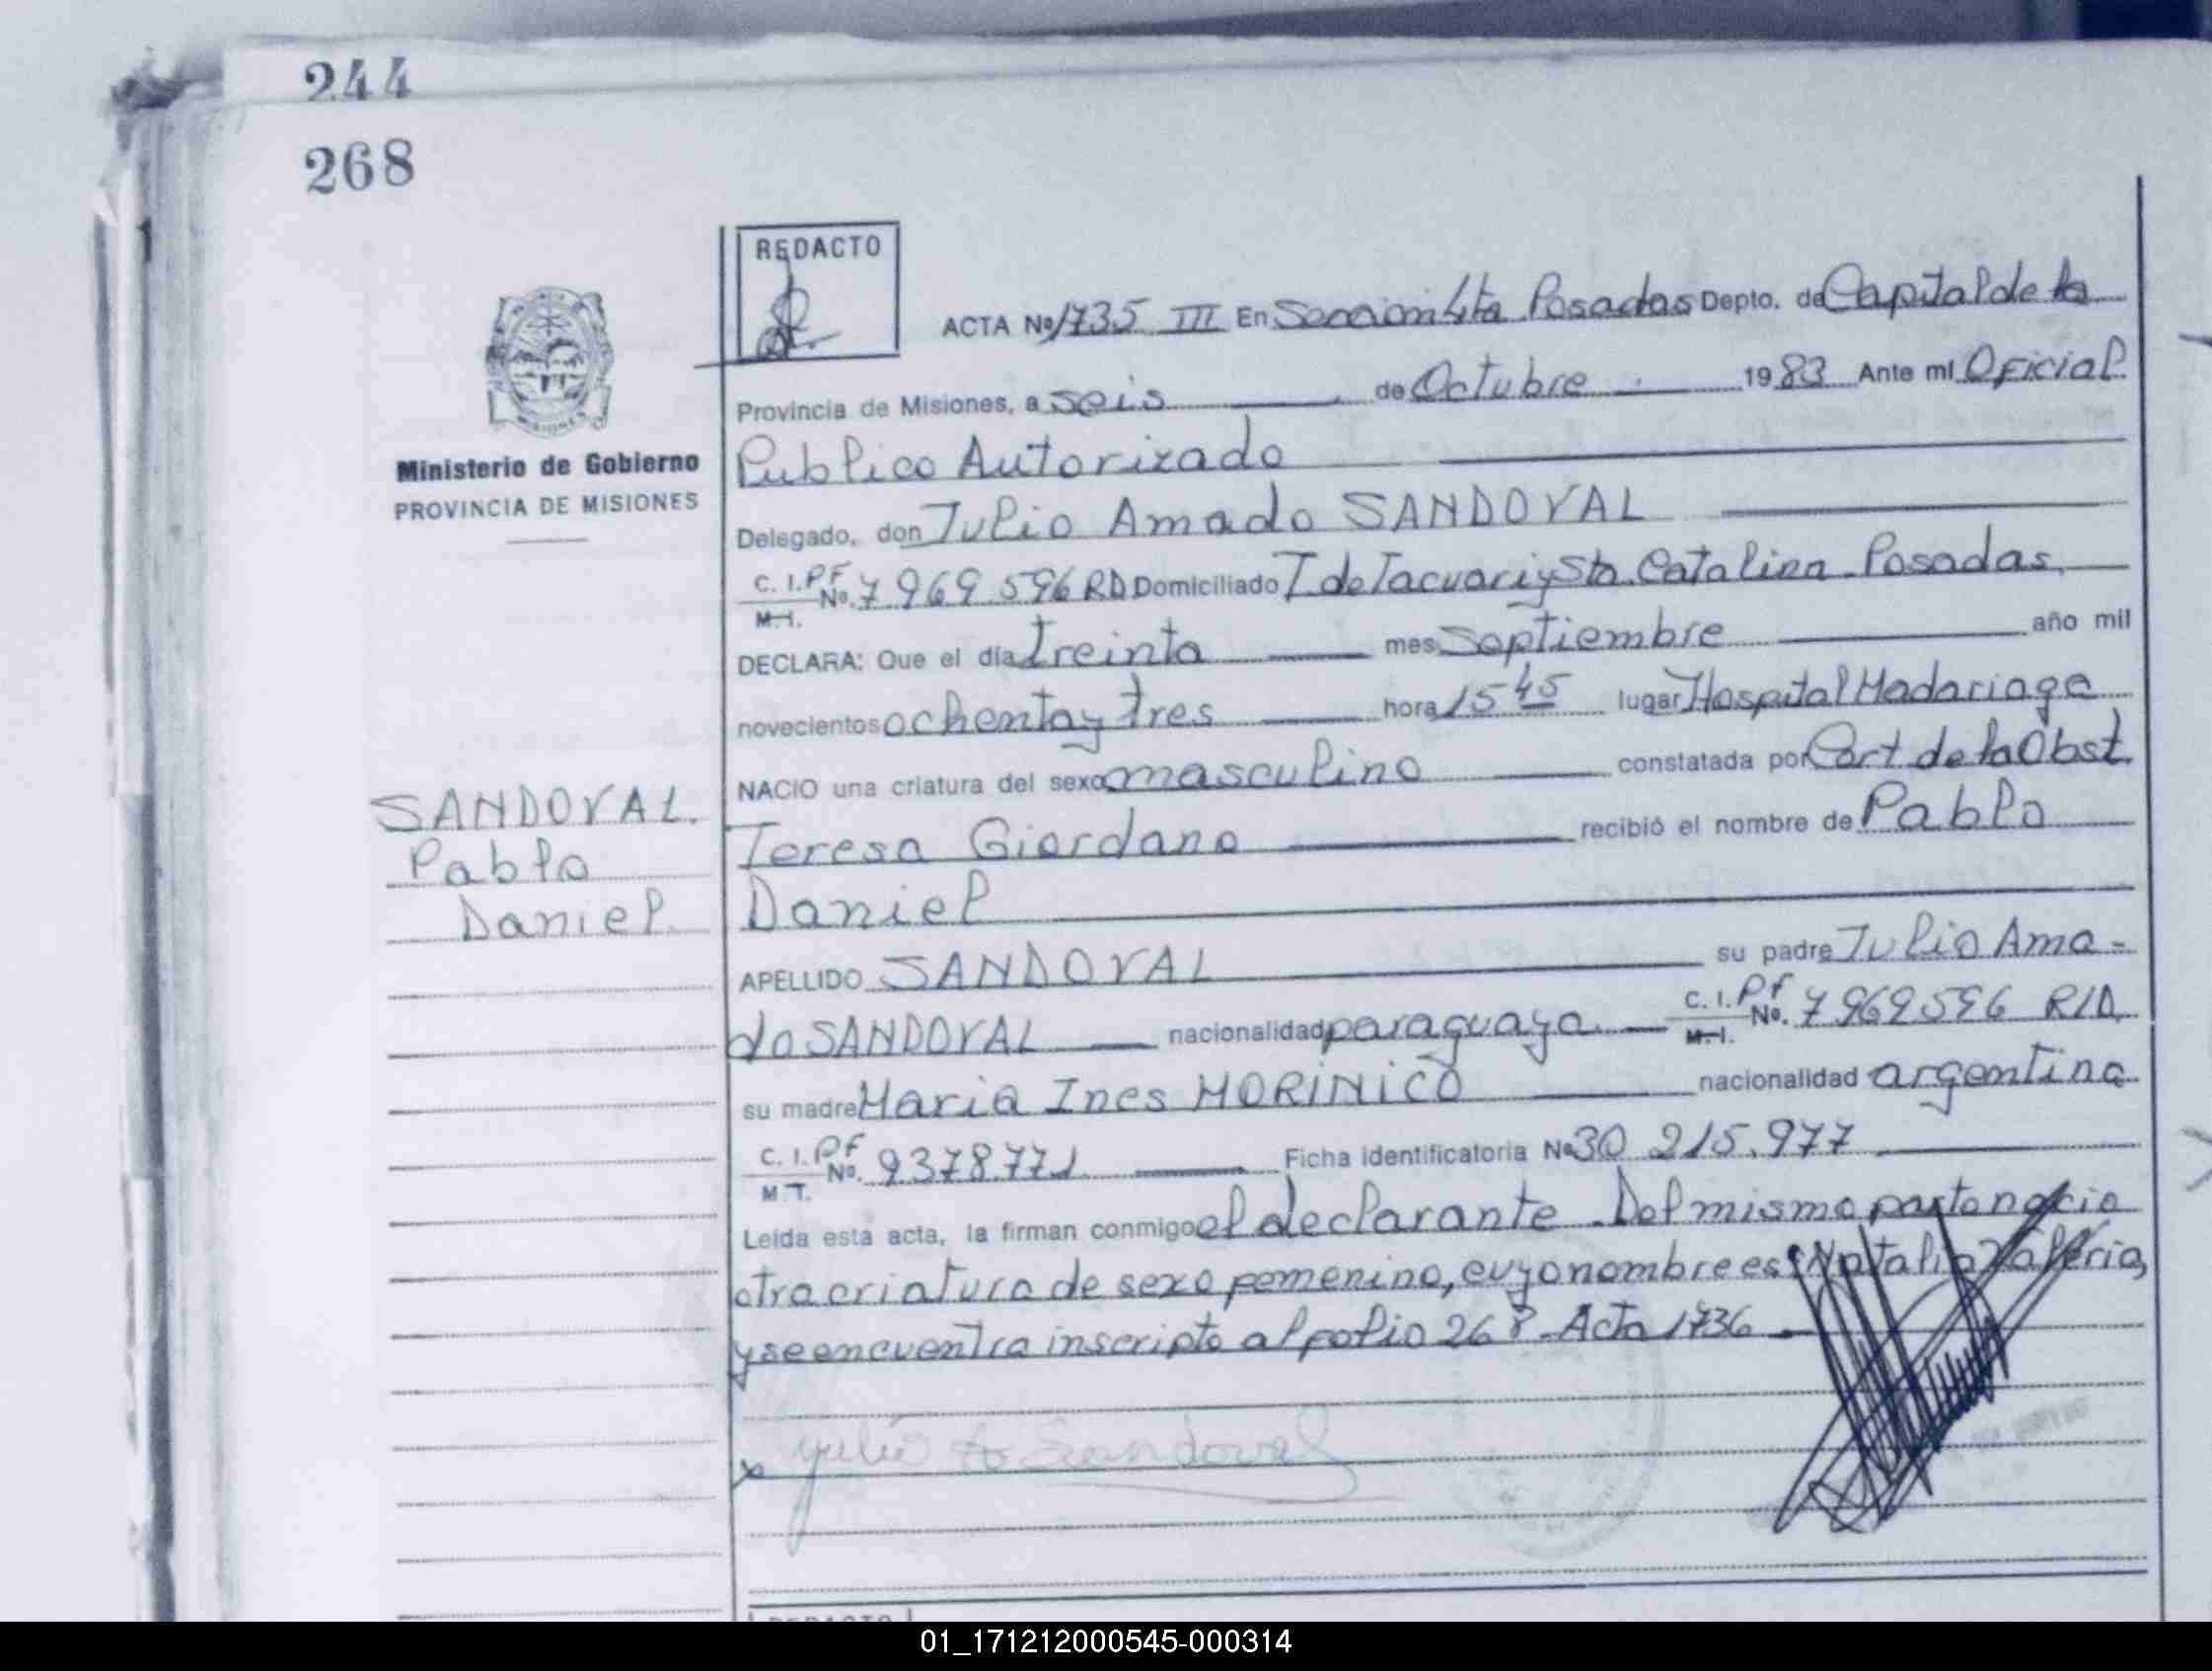 244
268
REDACTO
ACTA Nº 1735 III En Sección 4ta Posadas Depto. de Capital de la
Provincia de Misiones, a seis de Octubre 1983 Ante mí Oficial
Ministerio de Gobierno
PROVINCIA DE MISIONES
MISIONES
Publico Autorizado
Delegado, don Julio Amado SANDOVAL
C. I. P.F. Nº. 7969.596 RD Domiciliado T. de Tacuari y Sta. Catalina - Posadas
M.I.
DECLARA: Que el día treinta mes Septiembre año mil
novecientos ochenta y tres hora 15 45 lugar Hospital Madariaga
NACIO una criatura del sexo masculino constatada por Cert. de la Obst.
SANDOVAL.
Pablo
Daniel.
Teresa Giordano recibió el nombre de Pablo
Daniel
APELLIDO SANDOVAL su padre Julio Ama=
do SANDOVAL nacionalidad paraguaya C. I. Pf Nº. 7969596 R/D
M.I.
su madre Maria Ines MORINICO nacionalidad argentina
C. I. Pf Nº. 9378.771 Ficha identificatoria Nº 30 215.977
M.I.
Leída esta acta, la firman conmigo el declarante. Del mismo parto nacio
otra criatura de sexo femenino, cuyo nombre es: Natalia Valeria,
y se encuentra inscripto al folio 268 - Acta 1736
x Julio A Sandoval
REDACTO
01_171212000545-000314